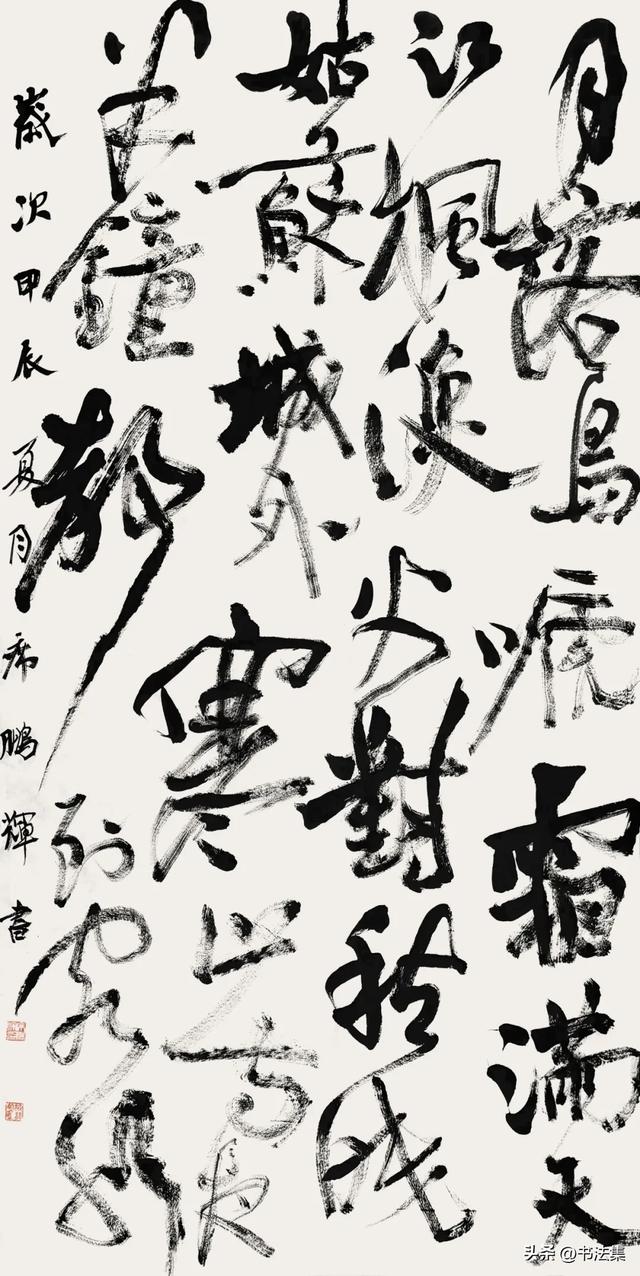 月落烏啼霜滿天
江楓漁火對愁眠
姑蘇城外寒山寺夜
半鐘聲到客船
歲次甲辰夏月席鵬輝書
头条 @书法集